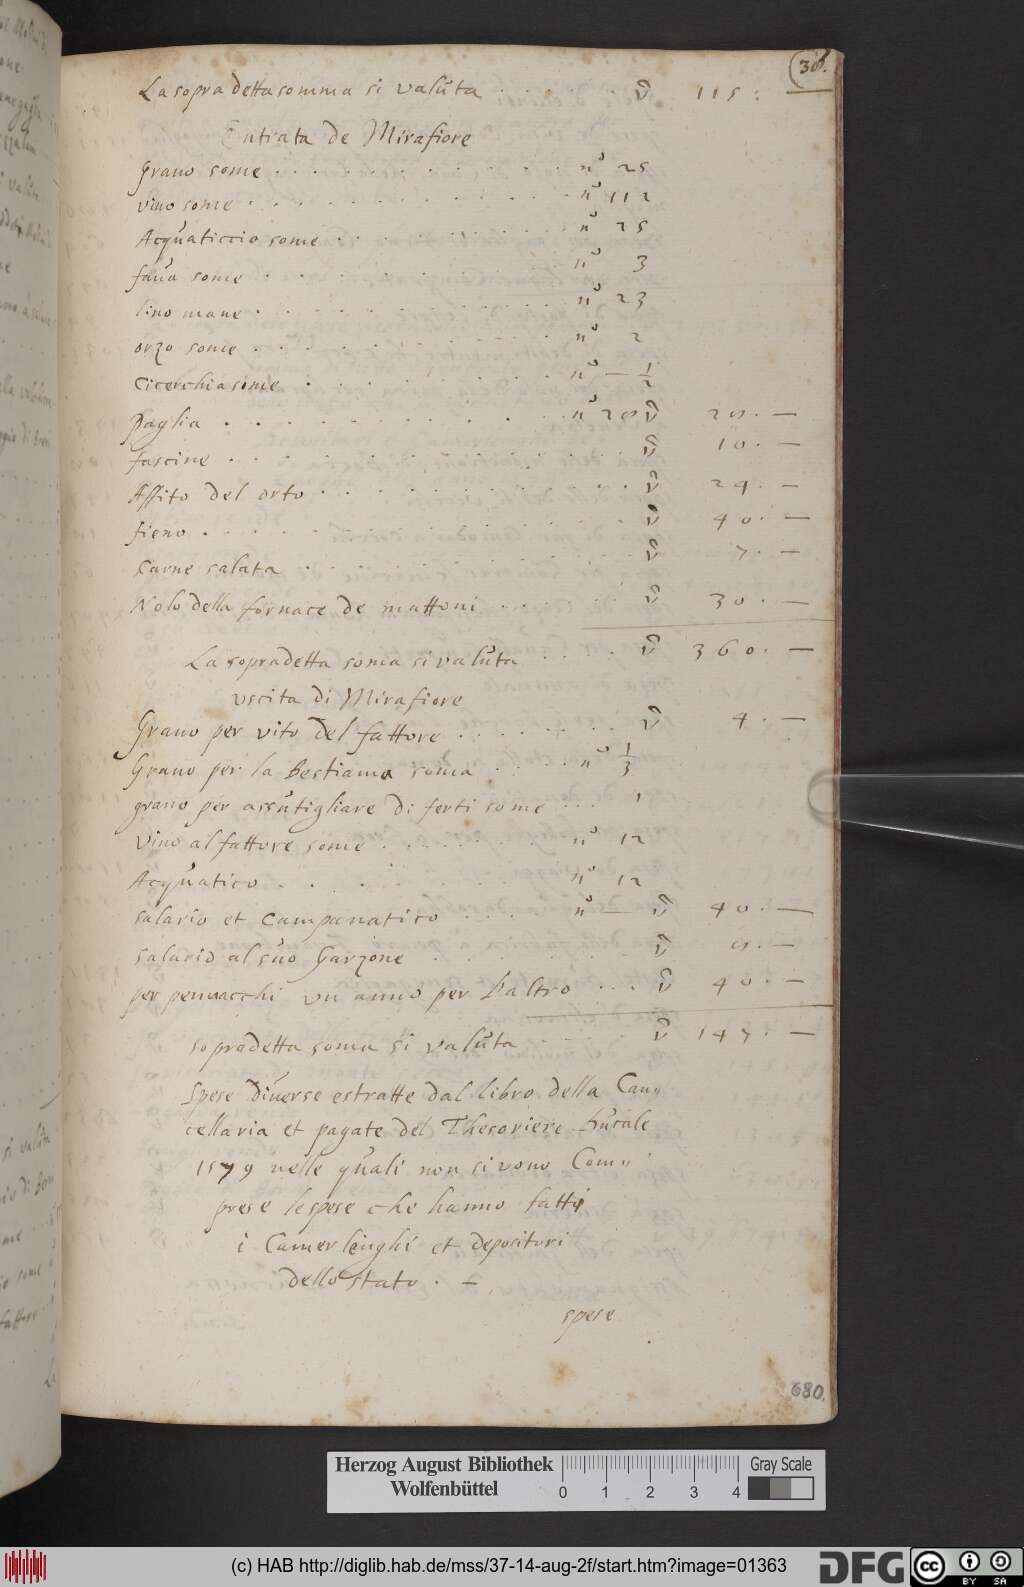 La sopra detta somma si valuta . . . . . . . ▽ 115 :
Entrata de Mirafiore
Grano some . . . . . . . . . . . . n° 25
vino some . . . . . . . . . . . . n° 112
Acquaticcio some . . . . . . . . . n° 25
faua some . . . . . . . . . . . n° 3
lino mane . . . . . . . . . . . n° 23
orzo some . . . . . . . . . . . n° 2
Cicerchia some . . . . . . . . . n° — 1/2
Paglia . . . . . . . . . . n°
fascine . . . . . . . . . . . ▽ 10. —
Affito del orto . . . . . . . . . ▽ 24. —
fieno . . . . . . . . . . . . ▽ 40. —
Carne salata . . . . . . . . . ▽ 7. —
Nolo della fornace de mattoni . . . . . ▽ 30. —
La sopradetta soma si valuta . . . . ▽ 360. —
vscita di Mirafiore
Grano per vito del fattore . . . . . . . ▽ 4. —
Grano per la Bestiama soma . . . . n° 1/3
grano per assutigliare di ferti some . . . 1
Vino al fattore some . . . . . . . n° 12
Acquatico . . . . . . . . n° 12
salario et Campanatico . . . n° — ▽ 40. —
salario al suo Garzone . . . . . . ▽
per pennacchi vn anno per l'altro . . . ▽ 40. —
sopradetta soma si valuta . . . . . ▽ 147. —
Spese diuerse estratte dal libro della Can
cellaria et pagate del Thesoriere Ducale
1579 nelle quali non si vono Com
prese le spese che hanno fatti
i Camerlenghi et depositori
dello stato . —
spese
680.
Herzog August Bibliothek
Wolfenbüttel
0 1 2 3 4
Gray Scale
(c) HAB http://diglib.hab.de/mss/37-14-aug-2f/start.htm?image=01363
DFG
cc BY SA